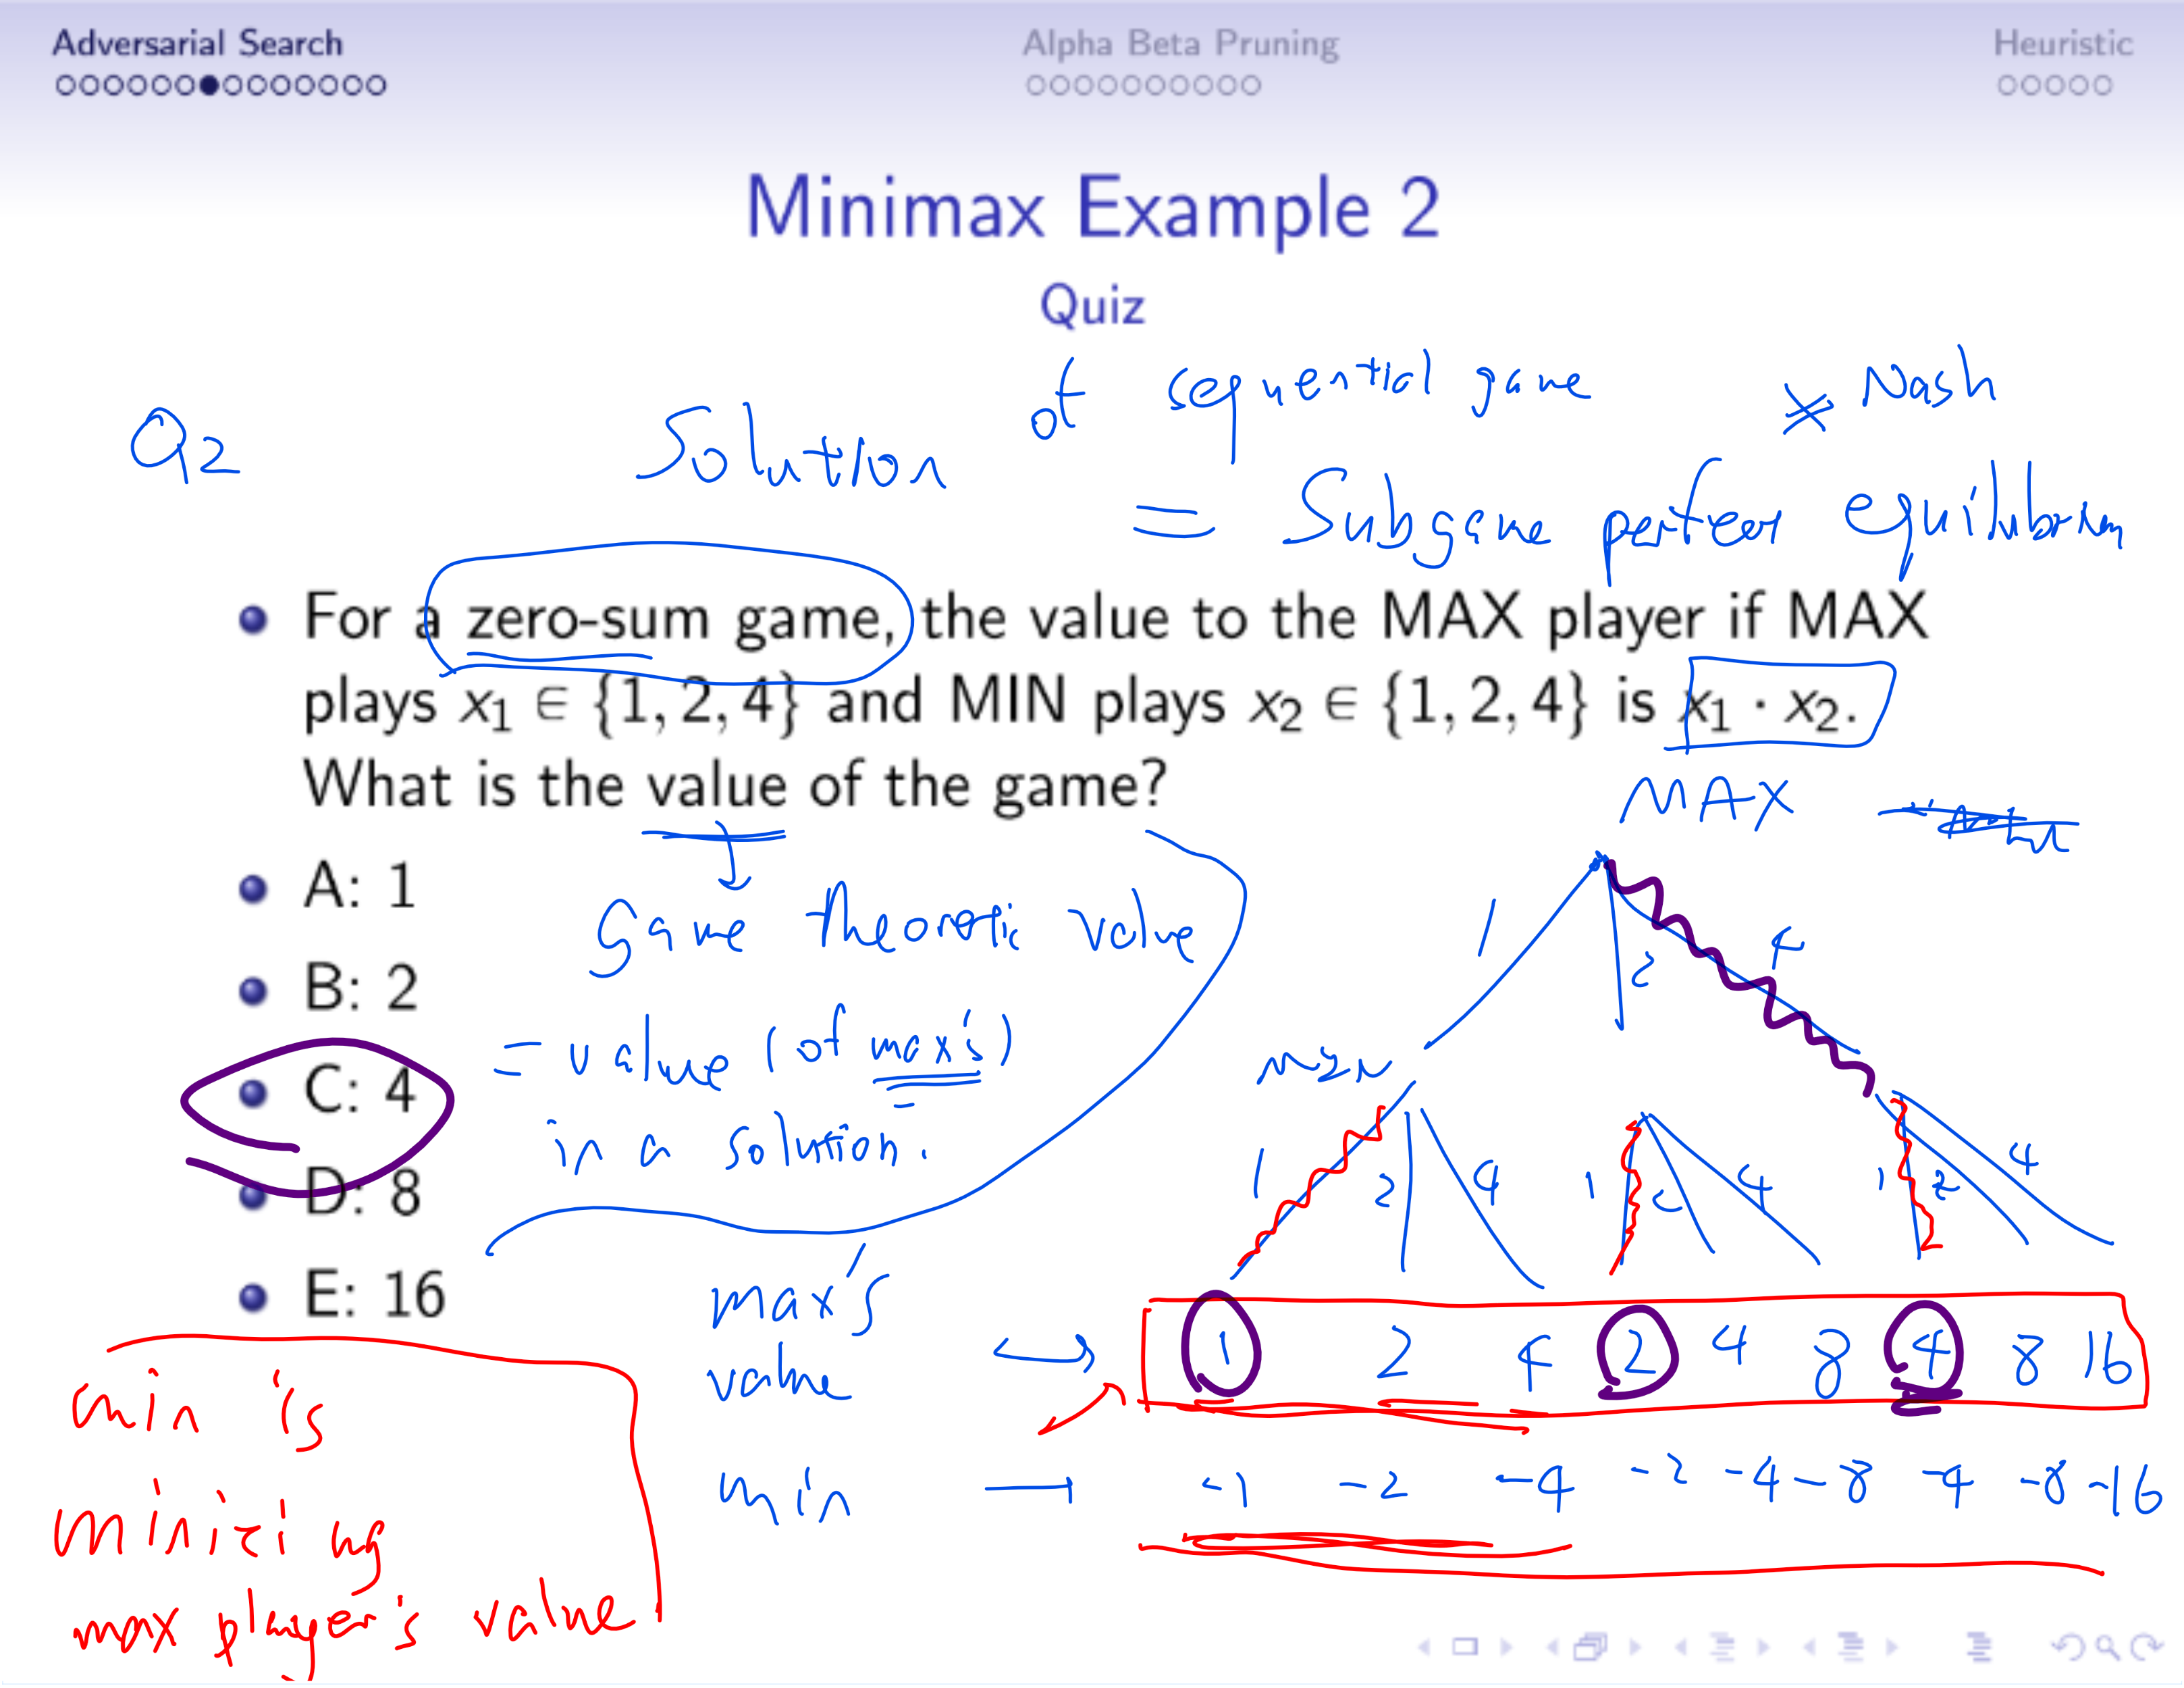 Adversarial Search
Alpha Beta Pruning
Heuristic
Minimax Example 2
Quiz
Q2
Solution of sequential game
* Nash
= Subgame perfect equilibrium
For a zero-sum game, the value to the MAX player if MAX
plays x₁ ∈ {1, 2, 4} and MIN plays x₂ ∈ {1, 2, 4} is x₁ · x₂.
What is the value of the game?
A: 1
B: 2
C: 4
D: 8
E: 16
Game theoretic value
= value (of max's)
in a solution.
MAX
1 2 4
MIN
1 2 4 1 2 4 1 2 4
max's
value
1 2 4 2 4 8 4 8 16
min
-1 -2 -4 -2 -4 -8 -4 -8 -16
min is
minizing
max player's value